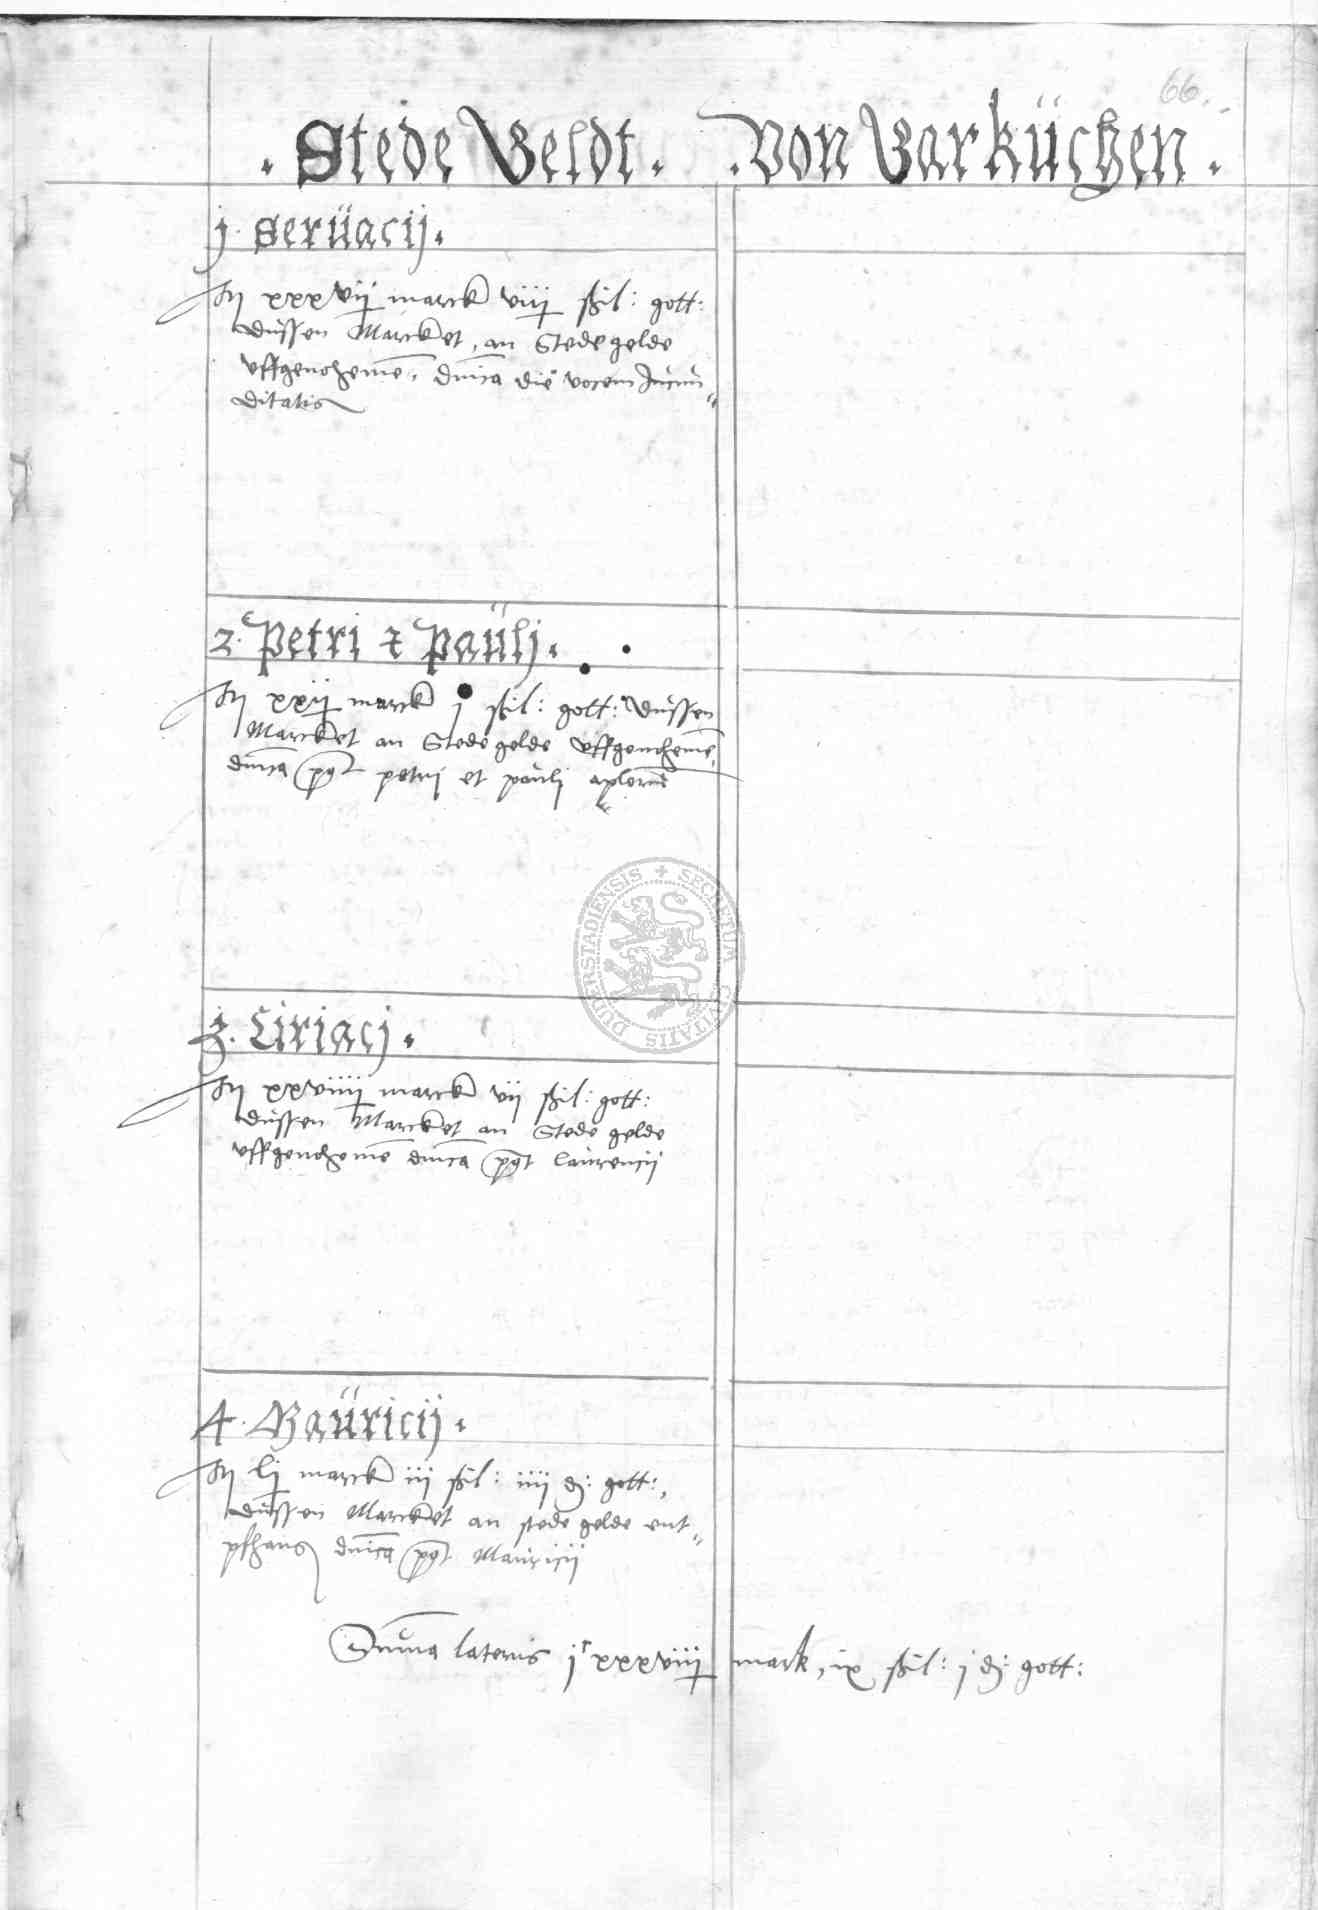 66.
. Stede Geldt . . von Garküchen .
j. Serüacij.
In xxxvij marck viiij ßil: gott:
dussen Marcket, an Stede gelde
vffgenoheme, dnica die vocem Jucun„
ditatis
2. Petri & Paulj.
In xxij marck j ßil: gott: dussen
Marcket an Stede gelde vffgenoheme,
dnica pqt petrij et paulj aplorum
3. Ciriacj.
In xxviiij marck vij ßil: gott:
dussen Marcket an Stede gelde
vffgenoheme dnica pqt laurencij
4. Mauricij.
In lj marck iij ßil: iiij d: gott:,
dussen Marcket an stede gelde ent„
pfhans dnica pqt Mauricij
Suma lateris jc xxxviiij mark, ix ßil: j d: gott:
DUDERSTADIENSIS + SECRETUM CIVITATIS